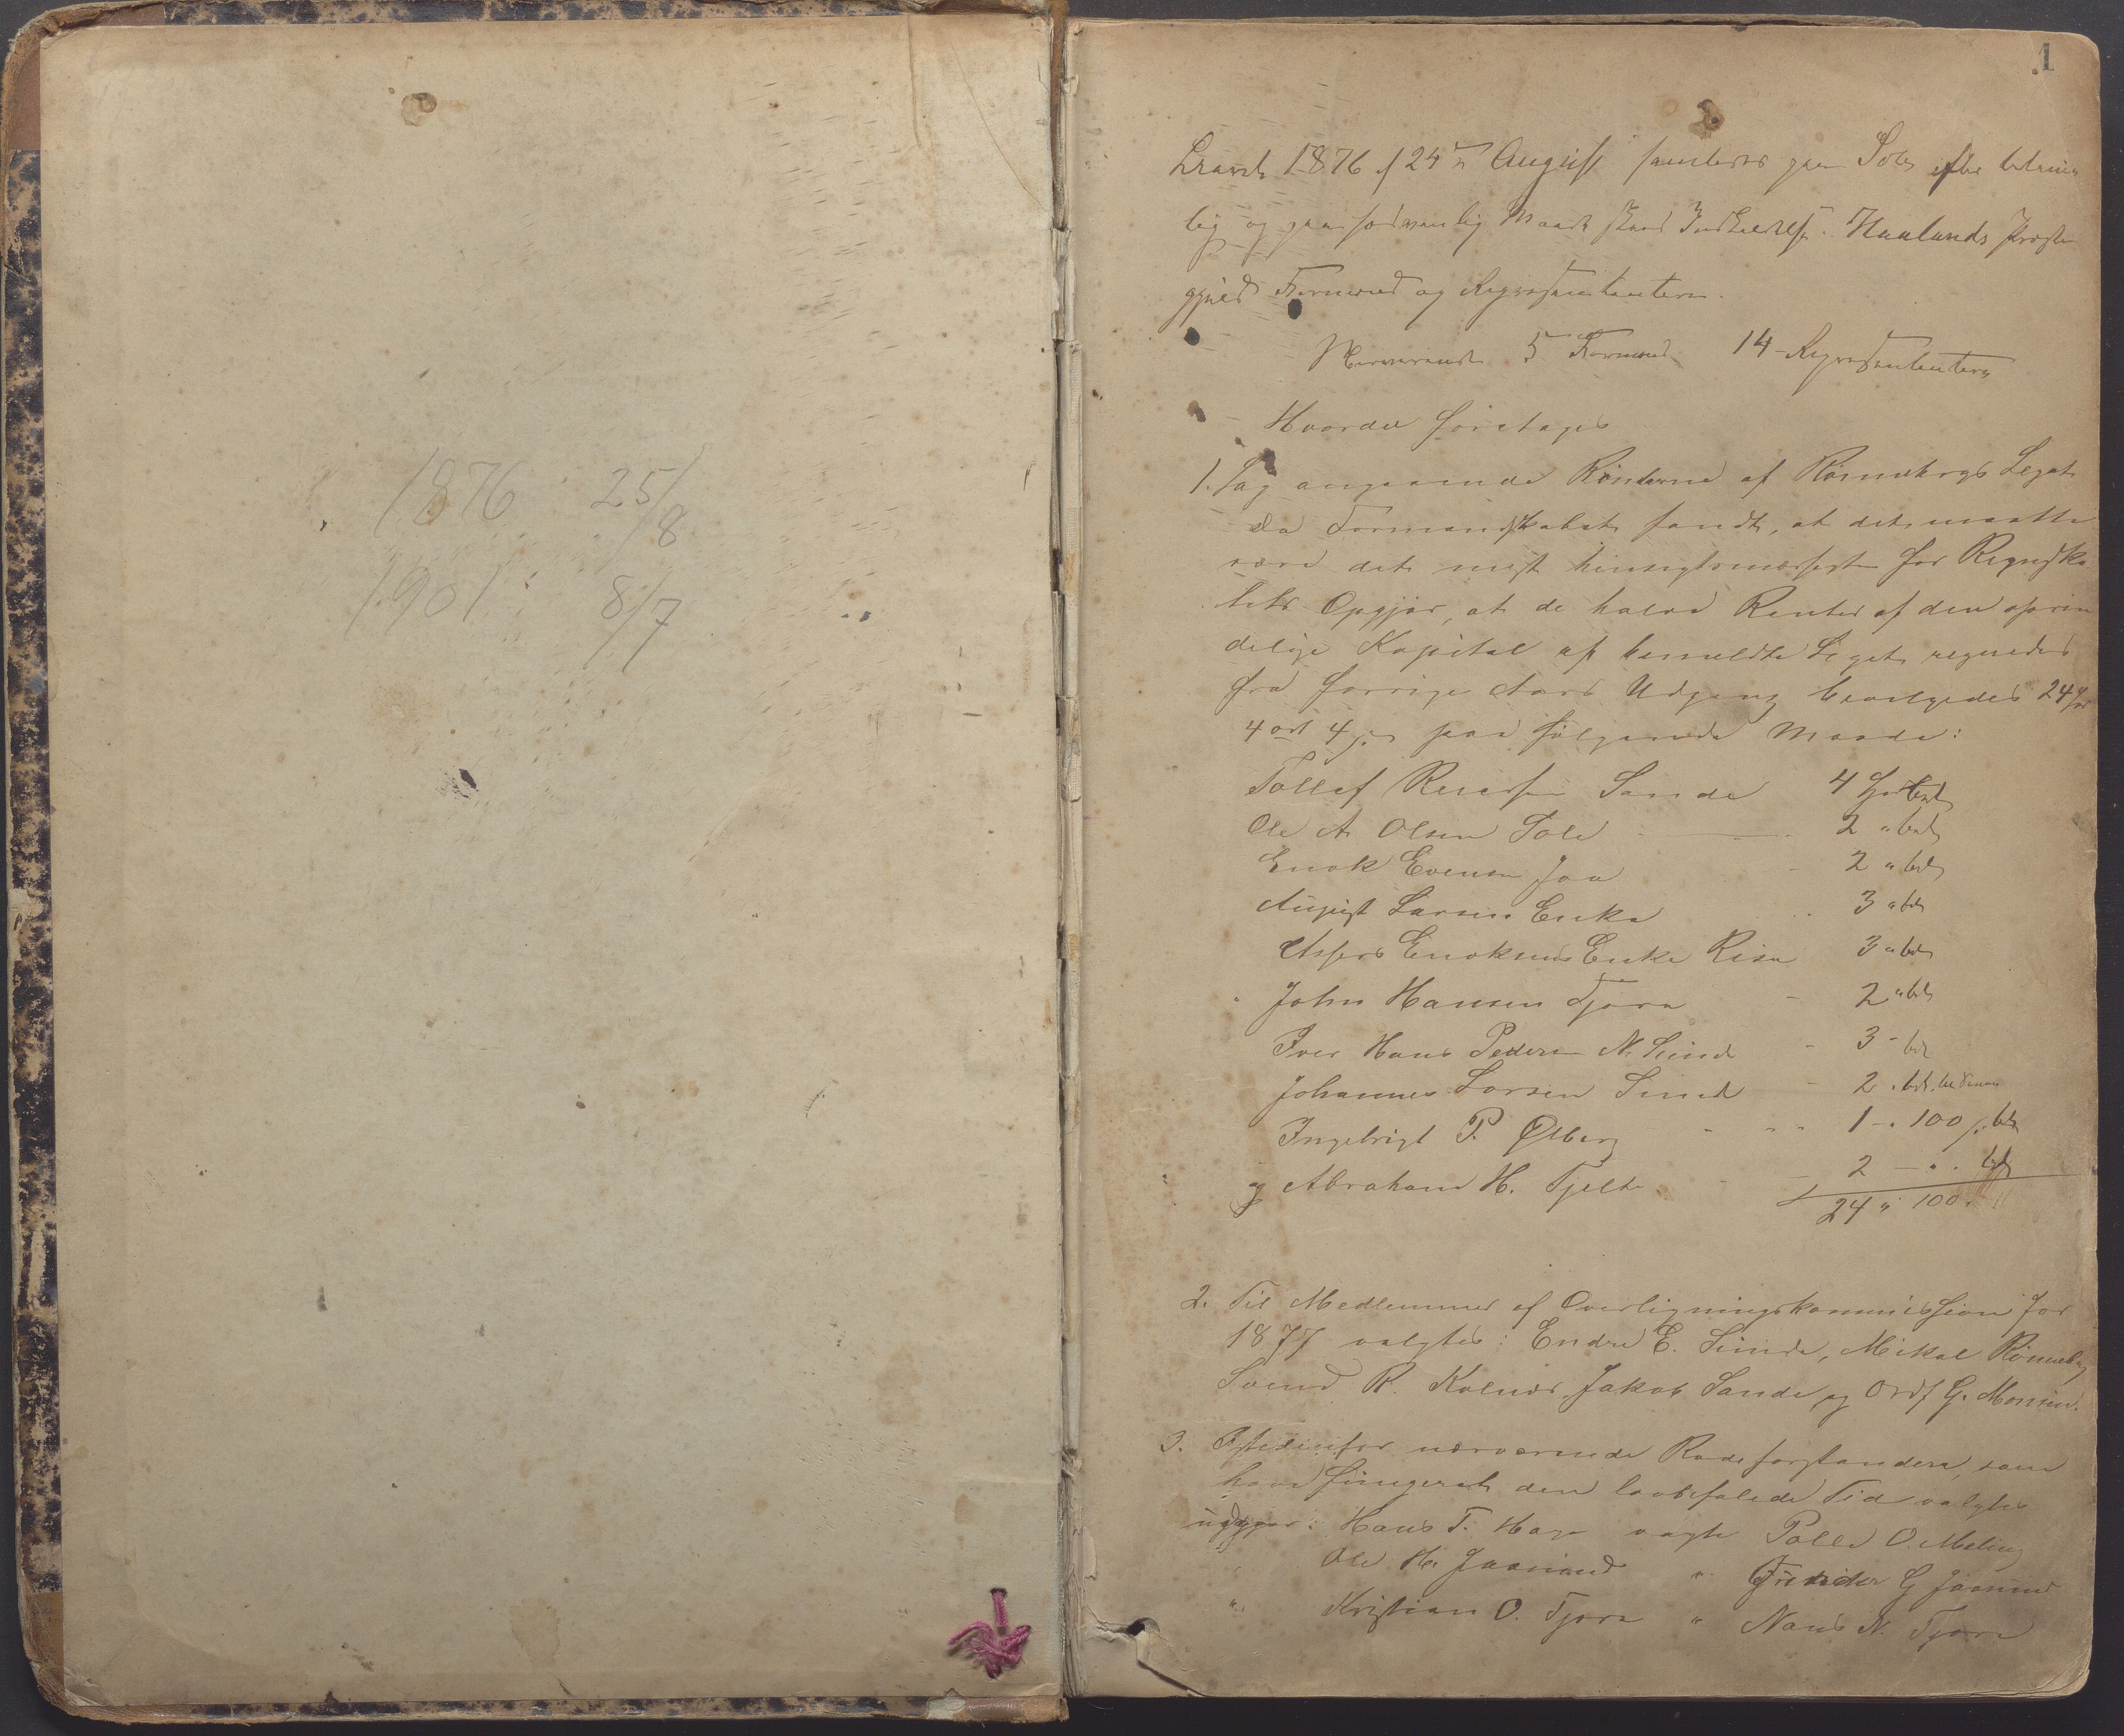 1876 25/8
1901 8/7
1
1876 d 24de August samledes paa Sole efter betime
lig og paa sædvanlig Maade skeed Indkaldelse Haalands Præste
gjeld Formænd og Repræsentantern
Nærværende 5 Formænd 14 Repræsentantern
Hvorda foretages
1. Sag angaaende Renterne af Rønnebergs Legat
Da Formandskabet fandt, at det maatte
være det mest hensigtsmæssigste for Regnska
bets Opgjør, at de halve Renter af den oprin
delige Kapital af bemeldte Legat regnedes
fra forrige Aars Udgang bevilgedes 24 Spd
4 ort 4 s paa følgende Maade:
Tollef Sande 4 Spd bet
Ole A Olsen Sole 2 " bet
Enok Evensen Joa 2 " bet
August Larsen Enke 3 " bet
Enoksens Enke Risa 3 " bet
John Hansen Tjora 2 " bet
Iver Hans Pedersen N. Sunde 3 - bet
Johannes Larsen Sunde 2 . bet.
Ingebrigt P. Ølberg 1 - " 100 s. bet
og Abraham H. Tjelta 2 - " " bet
24 " 100 "
2. Til Medlemmer af Overligningskommissjion for
1877 valgtes: Endre E. Sunde, Mikal Rønneberg
Svend R. Kolnes Jakob Sande og Ordf G. Monsen.
3. Istedenfor nærværende Rodeforstandere, som
have fungeret den lovbefalede Tid valgtes
Hans T. Haga valgte Palle O. Meling
" Ole H. Jaasund " G Jaasund
" Kristian O. Tjora " Hans N. Tjora